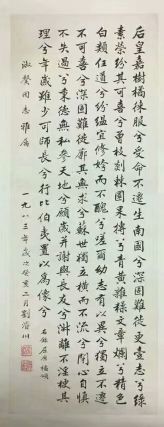 后皇嘉樹橘徠服兮受命不遷生南國兮深固難徙更壹志兮綠葉
素榮紛其可喜兮曾枝剡棘圓果摶兮青黃雜糅文章爛兮精色內
白類任道兮紛縕宜修姱而不醜兮嗟爾幼志有以異兮獨立不遷豈
不可喜兮深固難徙廓其無求兮蘇世獨立橫而不流兮閉心自慎終
不失過兮秉德無私參天地兮願歲并謝與長友兮淑離不淫梗其有
理兮年歲雖少可師長兮行比伯夷置以為像兮
右錄屈原橘頌
淑 同志雅屬
一九八三年歲次癸亥二月劉濟川